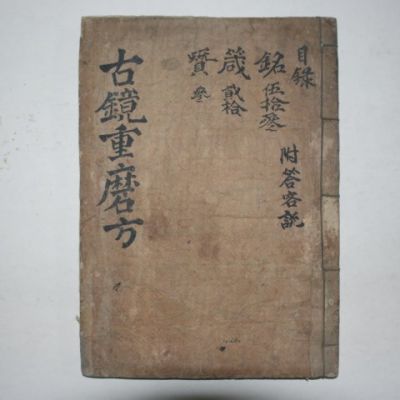 目錄
銘 伍拾叄
箴 貳拾
贊 叄
附答客説
古鏡重磨方